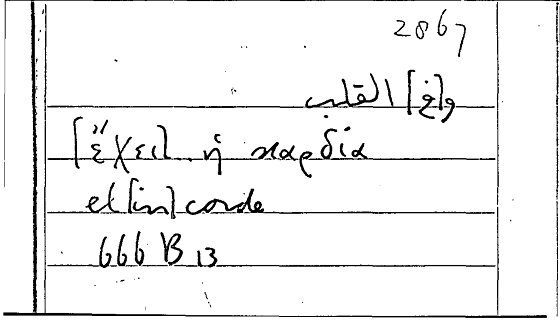 2867
و[في] القلب
[ἔχει] ἡ καρδία
et [in] corde
666 B 13